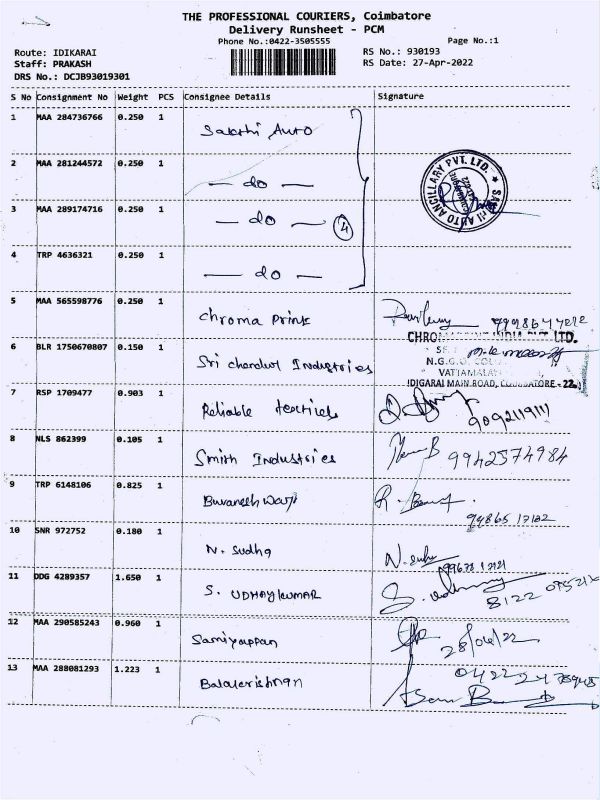 THE PROFESSIONAL COURIERS, Coimbatore
Delivery Runsheet - PCM
Phone No.:0422-3505555 Page No.:1
Route: IDIKARAI RS No.: 930193
Staff: PRAKASH RS Date: 27-Apr-2022
DRS No.: DCJB93019301
S No Consignment No Weight PCS Consignee Details Signature
1 MAA 284736766 0.250 1 Sakthi Auto
2 MAA 281244572 0.250 1 — do —
3 MAA 289174716 0.250 1 — do — 4
4 TRP 4636321 0.250 1 — do —
AUTO ANCILLARY PVT. LTD.
5 MAA 565598776 0.250 1 Chroma Prink
LTD.
6 BLR 1750670807 0.150 1 Sri Industries
N.G.G.O.
VATTAMALAI
IDIGARAI MAIN ROAD, - 22
7 RSP 1709477 0.903 1 Reliable 9092119111
8 NLS 862399 0.105 1 Smith Industries 9942574984
9 TRP 6148106 0.825 1 Buvaneshwari
10 SNR 972752 0.180 1 N. Sudha
11 DDG 4289357 1.650 1 S. UDHAYKUMAR
12 MAA 290585243 0.960 1 Samiyappan
28/04/22
13 MAA 288081293 1.223 1 Balakrishnan